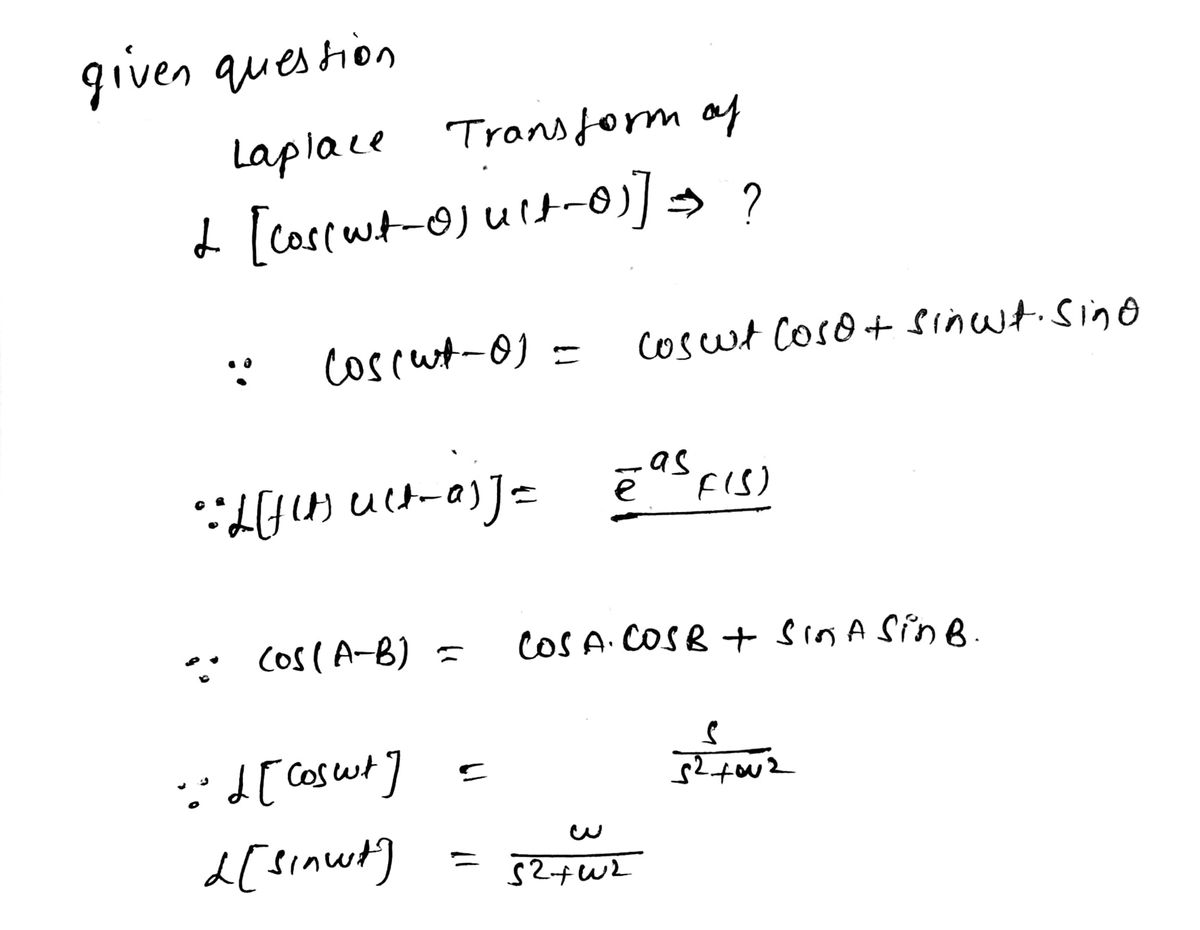 given question
Laplace Transform of
L [cos(wt-θ) u(t-θ)] ⇒ ?
∵ cos(wt-θ) = coswt cosθ + sinwt·sinθ
∵ L[f(t) u(t-a)] = e^-as F(S)
∵ cos(A-B) = cos A. cos B + sin A sin B.
∵ L[coswt] = s/s²+w²
L[sinwt] = w/s²+w²